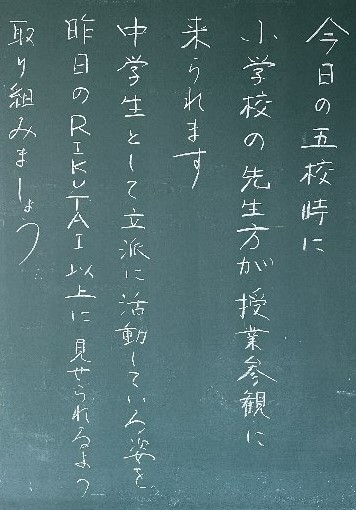 今日の五校時に
小学校の先生方が授業参観に
来られます
中学生として立派に活動している姿を
昨日のRIKUTAI以上に見せられるよう
取り組みましょう